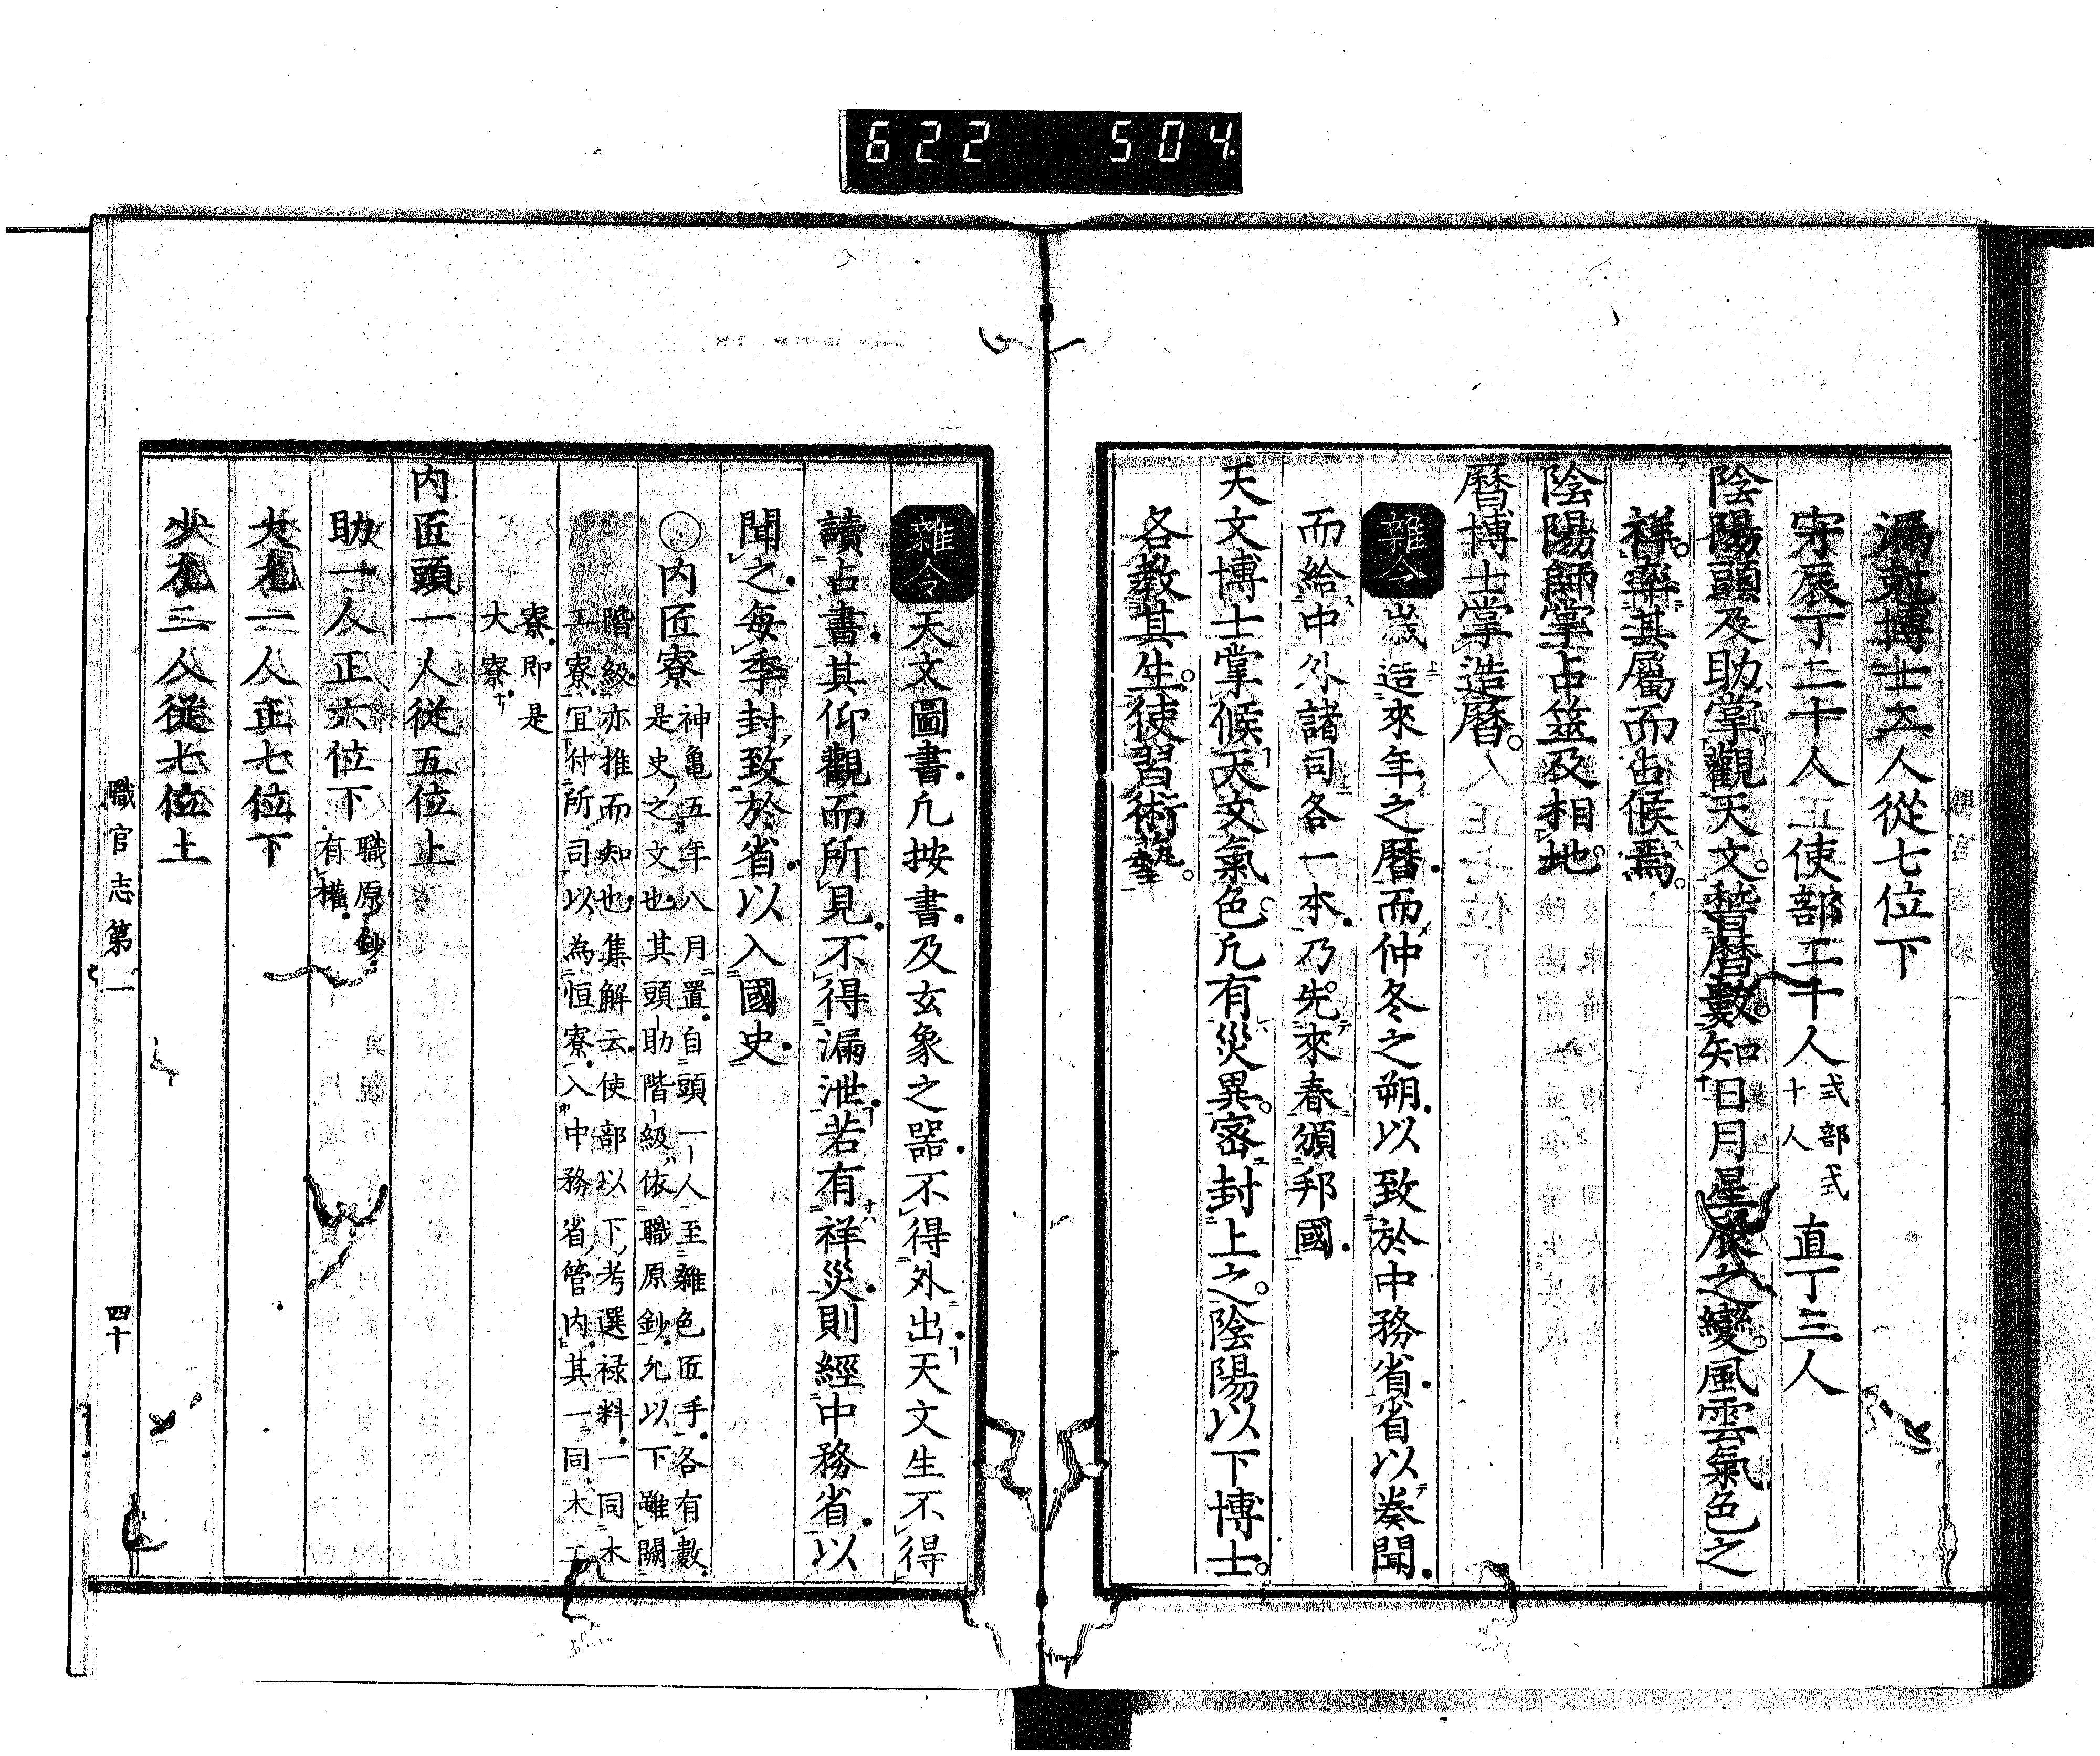 622 504
漏剋博士二人從七位下
守辰丁二十人使部二十人
式部式
十人
直丁三人
陰陽頭及助掌觀天文暦數知日月星辰之變風雲氣色之
祥率其屬而占候焉
陰陽師掌占筮及相地
曆博士掌造曆
雜令 歳造來年之曆而仲冬之朔以致於中務省省以奏聞
而給中外諸司各一本乃先來春頒邦國
天文博士掌候天文氣色凡有災異密封上之陰陽以下博士
各教其生使習術藝
雜令 天文圖書凡按書及玄象之器不得外出天文生不得
讀占書其仰觀而所見不得漏泄若有祥災則經中務省以
聞之每季封致於省以入國史
○內匠寮
神亀五年八月置自頭一人至雜色匠手各有數
是史之文也其頭助階級依職原鈔允以下雖闕
階級亦推而知也集解云使部以下考選禄料一同木
工寮宜付所司以為恒寮入中務省管内其一同木工
寮即是
大寮
內匠頭一人從五位上
助一人正六位下
職原鈔
有權
大允一人正七位下
少允二人從七位上
職官志第一
四十